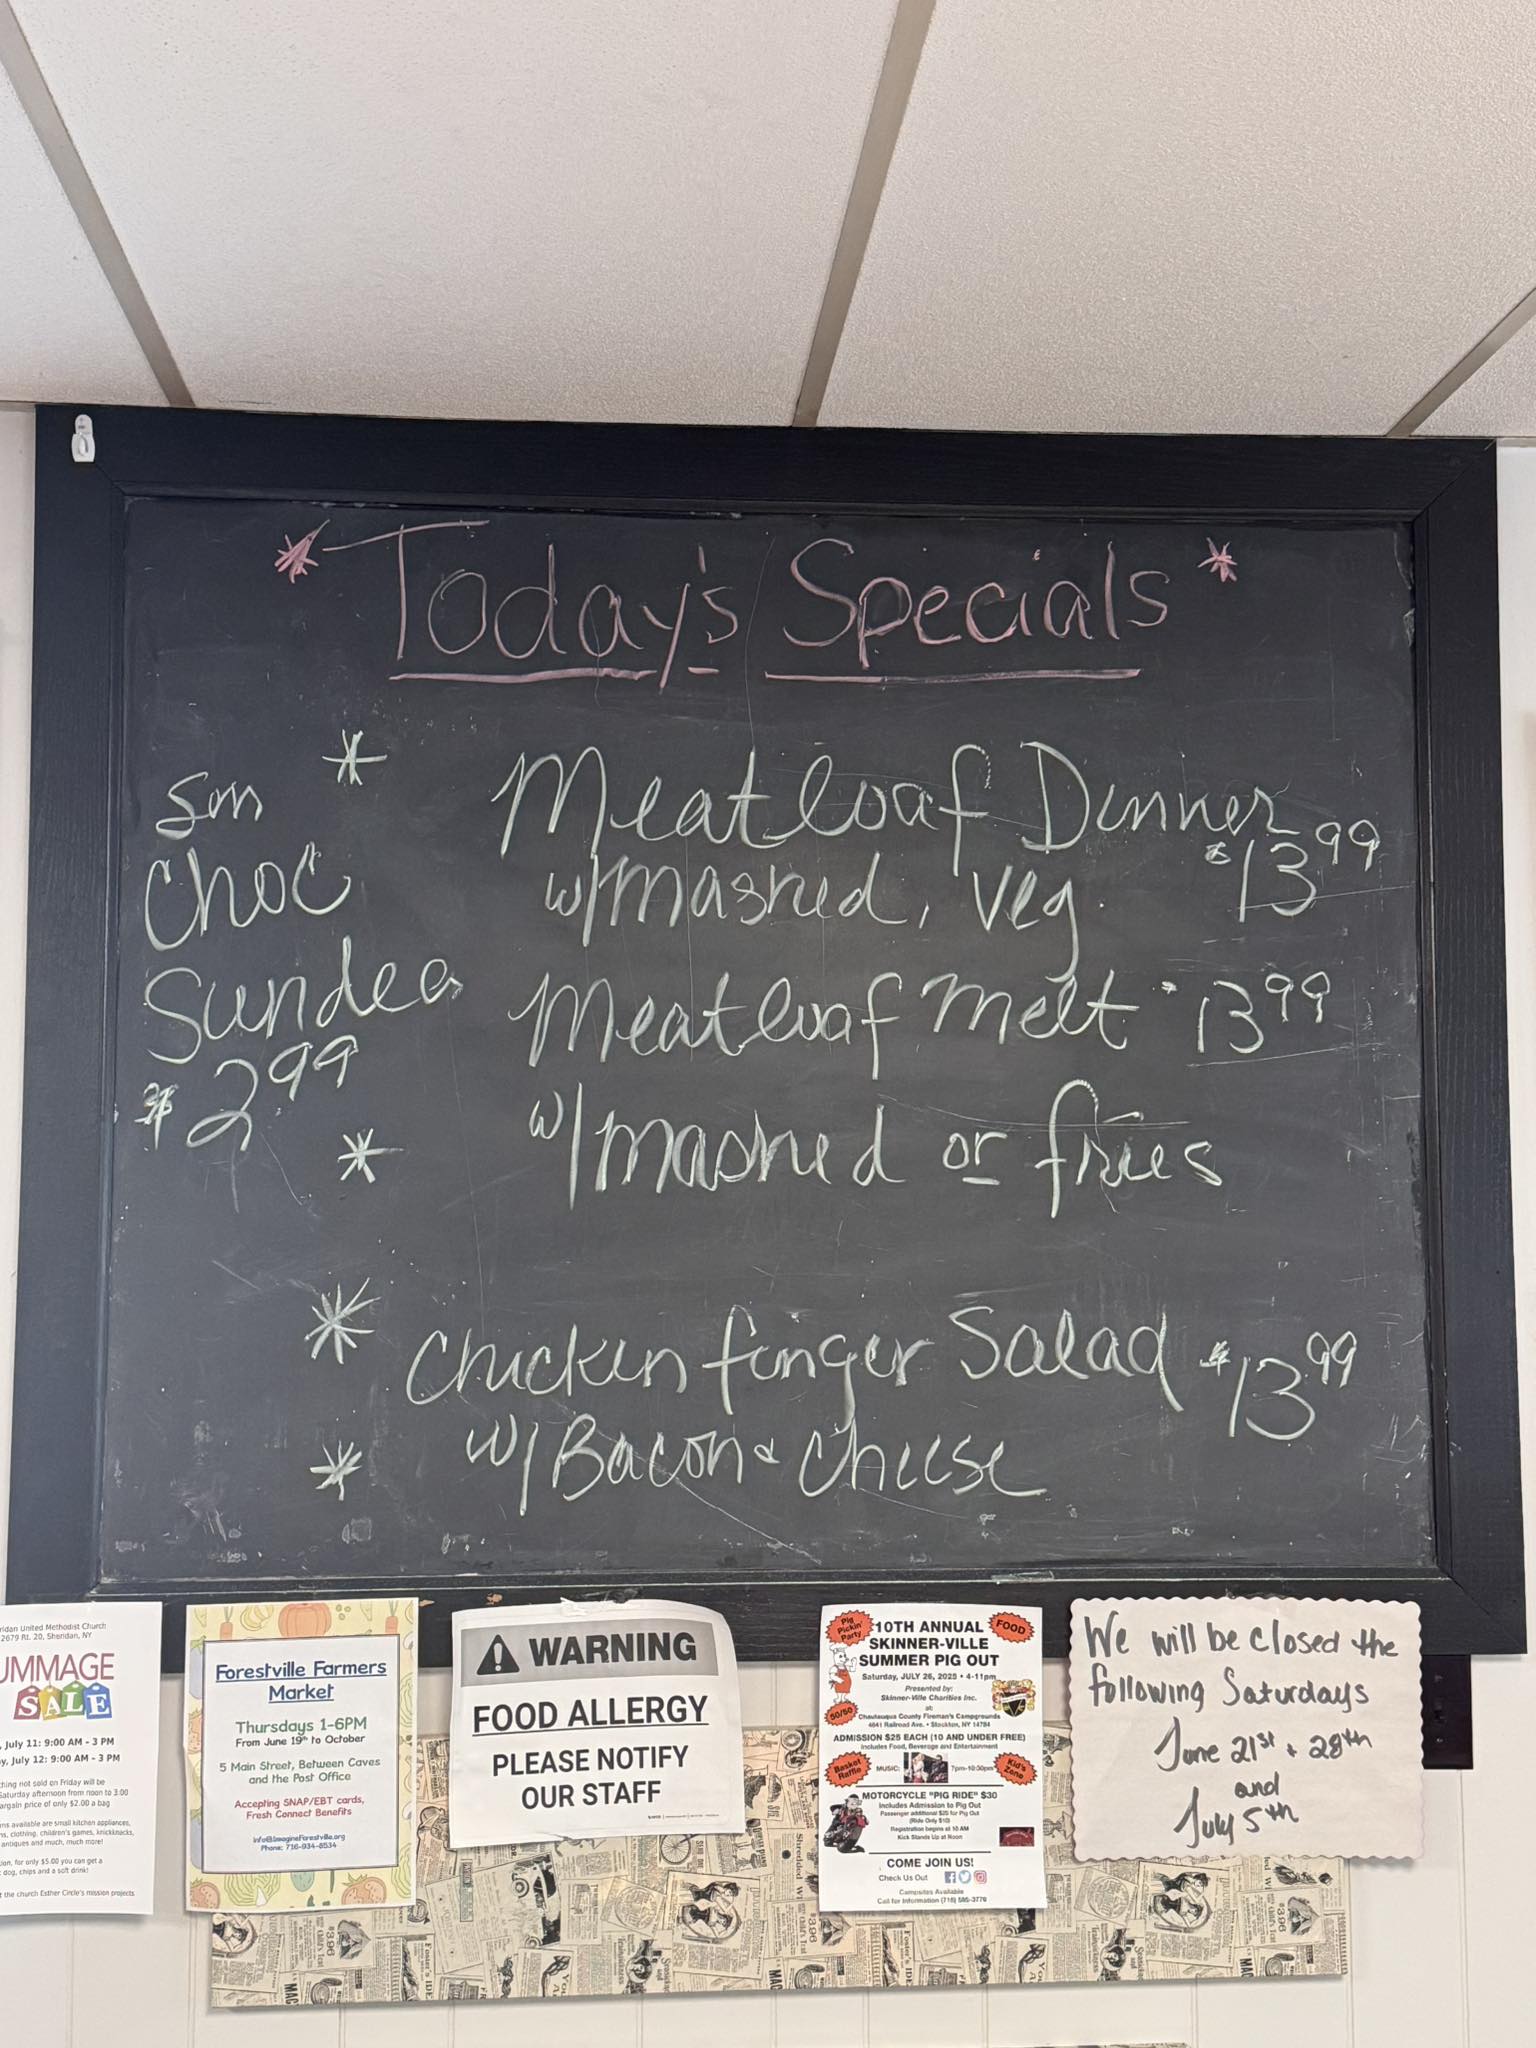 * Today's Specials *
Sm
Choc
Sundea
$2.99
* Meatloaf Dinner
w/mashed, veg. $13.99
Meatloaf melt $13.99
* w/mashed or fries
* Chicken finger Salad $13.99
* w/Bacon & cheese
ridan United Methodist Church
2679 Rt. 20, Sheridan, NY
UMMAGE
SALE
, July 11: 9:00 AM - 3 PM
y, July 12: 9:00 AM - 3 PM
thing not sold on Friday will be
Saturday afternoon from noon to 3:00
argain price of only $2.00 a bag
ms available are small kitchen appliances,
s, clothing, children's games, knickknacks,
antiques and much, much more!
ion, for only $5.00 you can get a
dog, chips and a soft drink!
t the church Esther Circle's mission projects
Forestville Farmers
Market
Thursdays 1-6PM
From June 19th to October
5 Main Street, Between Caves
and the Post Office
Accepting SNAP/EBT cards,
Fresh Connect Benefits
info@ImagineForestville.org
Phone: 716-934-8534
WARNING
FOOD ALLERGY
PLEASE NOTIFY
OUR STAFF
Pig
Pickin'
Party
10TH ANNUAL
SKINNER-VILLE
SUMMER PIG OUT
FOOD
Saturday, JULY 26, 2025 • 4-11pm
Presented by:
Skinner-Ville Charities Inc.
at:
50/50
Chautauqua County Fireman's Campgrounds
4641 Railroad Ave. • Stockton, NY 14784
ADMISSION $25 EACH (10 AND UNDER FREE)
Includes Food, Beverage and Entertainment
Basket
Raffle
MUSIC:
7pm-10:30pm
Kid's
Zone
MOTORCYCLE "PIG RIDE" $30
Includes Admission to Pig Out
Passenger additional $25 for Pig Out
(Ride Only $10)
Registration begins at 10 AM
Kick Stands Up at Noon
COME JOIN US!
Check Us Out
Campsites Available
Call for Information (716) 595-3770
We will be closed the
following Saturdays
June 21st + 28th
and
July 5th